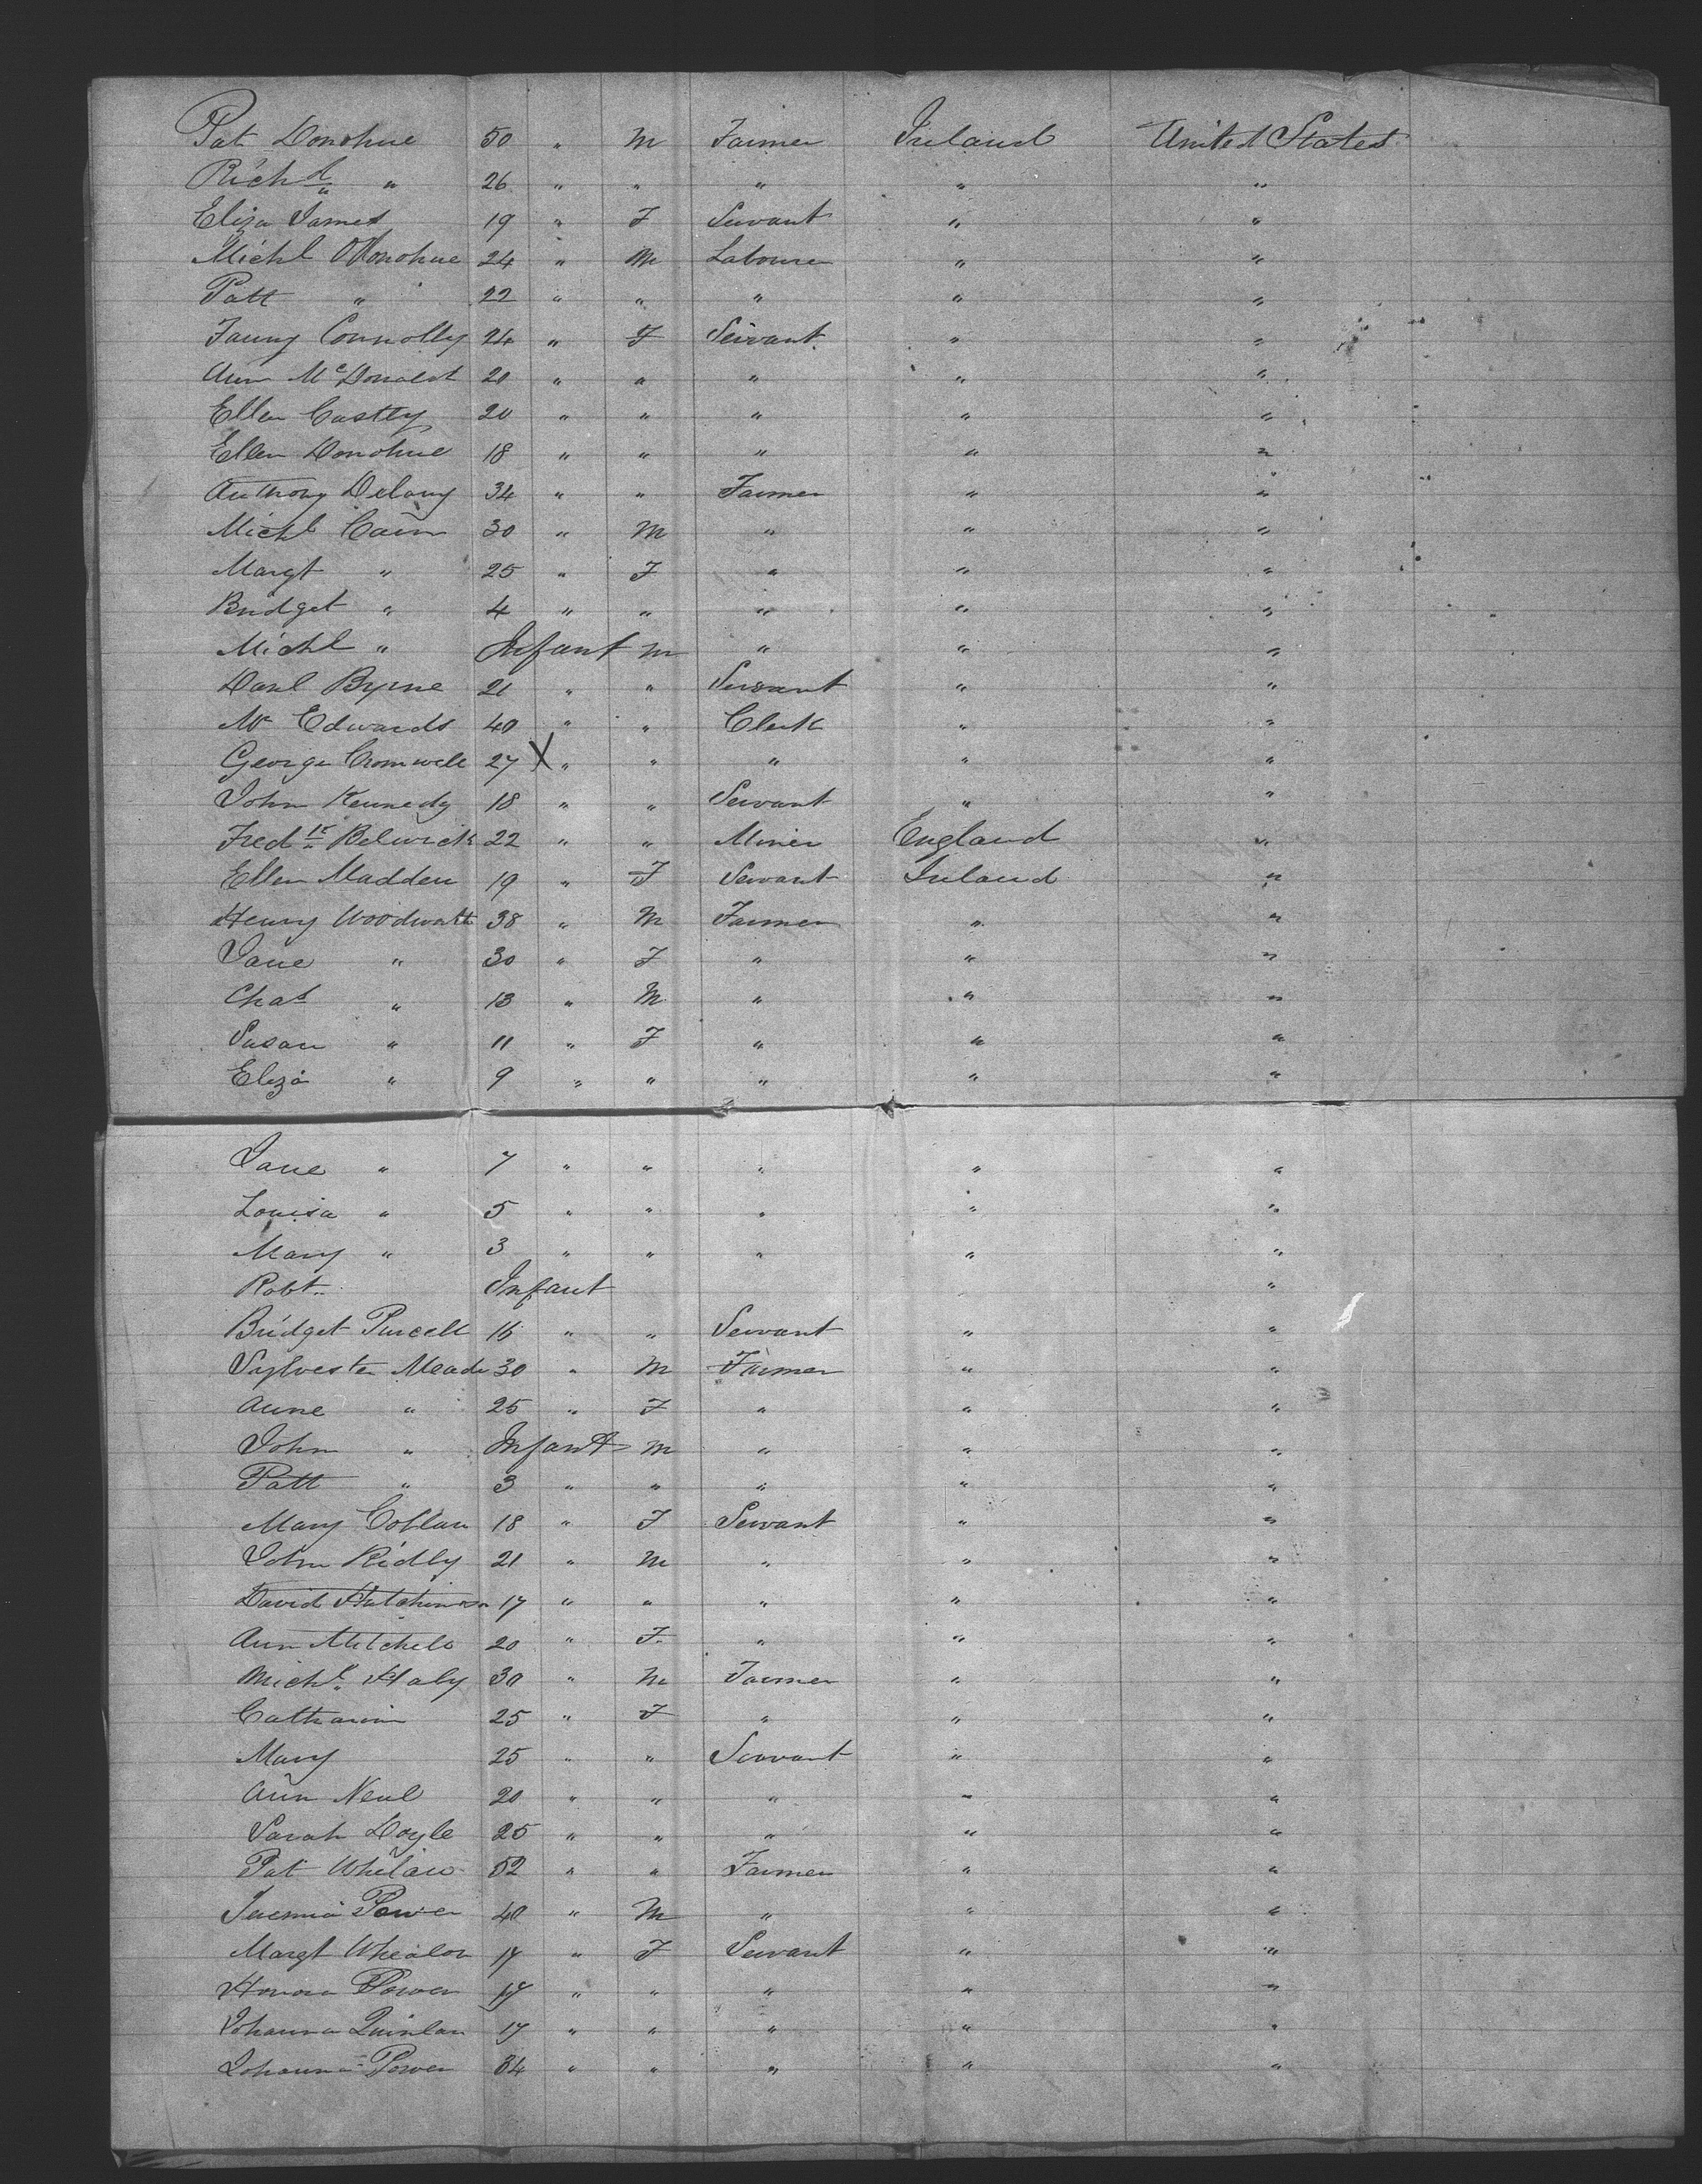 Pat Donohue 50 " M Farmer Ireland United States
Richd " 26 " " " " "
Eliza James 19 " F Servant " "
Michl O'Donohue 24 " M Labourer " "
Patt " 22 " " " " "
Fanny Connolly 24 " F Servant " "
Ann McDonald 20 " " " " "
Ellen Costly 20 " " " " "
Ellen Donohue 18 " " " " "
Anthony Delany 34 " " Farmer " "
Michl Cain 30 " M " " "
Margt " 25 " F " " "
Bridget " 4 " " " " "
Michl " Infant M " " "
Danl Byrne 21 " " Servant " "
Mr Edwards 40 " " Clerk " "
George Cromwell 27 X " " " " "
John Kennedy 18 " " Servant " "
Fredk Belwick 22 " " Miner England "
Ellen Madden 19 " F Servant Ireland "
Henry Woodwatt 38 " M Farmer " "
Jane " 30 " F " " "
Chas " 13 " M " " "
Susan " 11 " F " " "
Eliza " 9 " " " " "
Jane " 7 " " " " "
Louisa " 5 " " " " "
Mary " 3 " " " " "
Robt " Infant "
Bridget Purcell 16 " " Servant " "
Sylvester Meade 30 " M Farmer " "
Anne " 25 " F " " "
John " Infant M " " "
Patt " 3 " " " " "
Mary Coflan 18 " F Servant " "
John Ridly 21 " M " " "
David Hutchinson 17 " " " " "
Ann Mitchels 20 " F " " "
Michl Haly 30 " M Farmer " "
Catharin 25 " F " " "
Mary 25 " " Servant " "
Ann Neul 20 " " " " "
Sarah Doyle 25 " " " " "
Pat Whelan 52 " " Farmer " "
Jeremia Power 40 " M " " "
Margt Whealon 17 " F Servant " "
Honora Power 17 " " " " "
Johanna Quinlan 17 " " " " "
Johanna Power 34 " " " " "